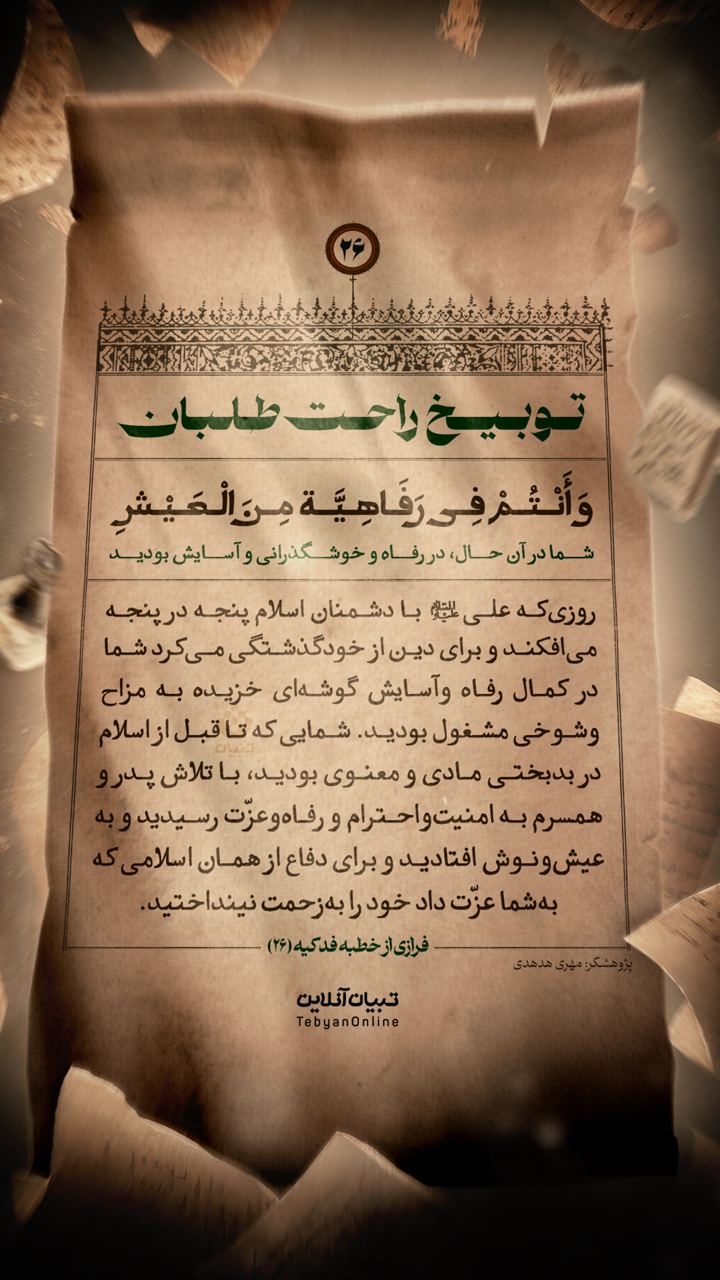 ۲۶
توبیخ راحت طلبان
وَأَنْتُمْ فِی رَفَاهِیَّة مِنَ الْعَیْشِ
شما در آن حال، در رفاه و خوشگذرانی و آسایش بودید
روزی‌که علی علیه‌السلام با دشمنان اسلام پنجه در پنجه
می‌افکند و برای دین از خودگذشتگی می‌کرد شما
در کمال رفاه وآسایش گوشه‌ای خزیده به مزاح
وشوخی مشغول بودید. شمایی که تا قبل از اسلام
در بدبختی مادی و معنوی بودید، با تلاش پدر و
همسرم به امنیت‌واحترام و رفاه‌وعزّت رسیدید و به
عیش‌ونوش افتادید و برای دفاع از همان اسلامی که
به‌شما عزّت داد خود را به‌زحمت نینداختید.
فرازی از خطبه فدکیه (۲۶)
پژوهشگر: مهری هدهدی
تبیان آنلاین
TebyanOnline